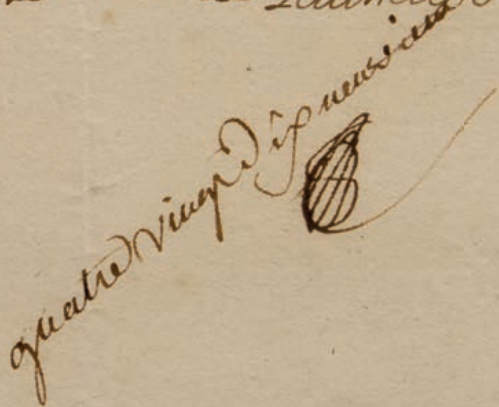 quatre vingt Dix neuvieme